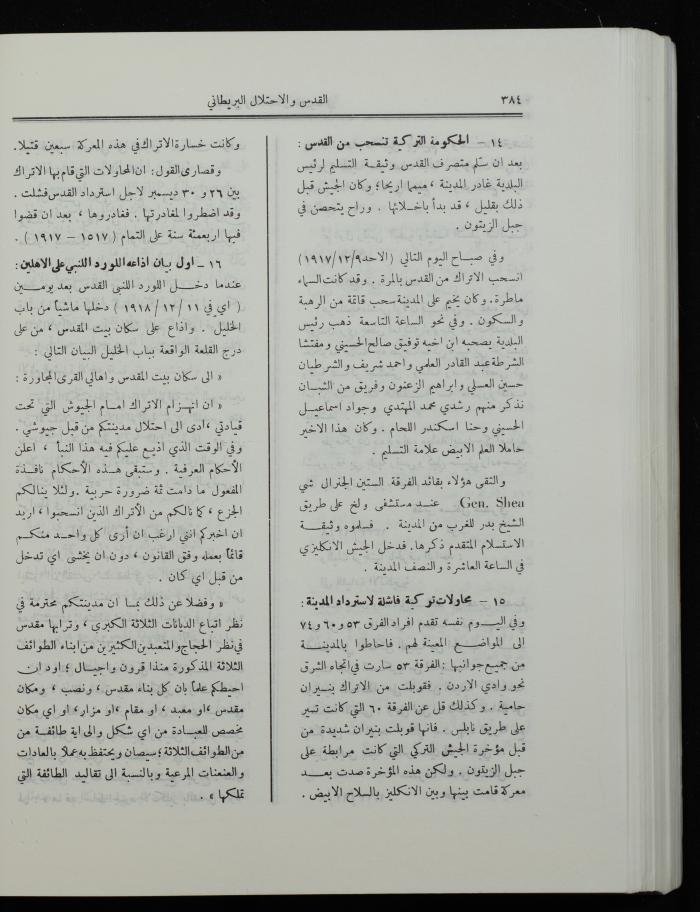 ٣٨٤
القدس والاحتلال البريطاني
١٤ – الحكومة التركية تنسحب من القدس :
بعد ان سلّم متصرف القدس وثيقة التسليم لرئيس
البلدية غادر المدينة ، ميمما اريحا؛ وكان الجيش قبل
ذلك بقليل ، قد بدأ باخلائها . وراح يتحصن في
جبل الزيتون .
وفي صباح اليوم التالي (الاحد ١٩١٧/١٢/٩)
انسحب الاتراك من القدس بالمرة . وقد كانت السماء
ماطرة. وكان يخيم على المدينة سحب قاتمة من الرهبة
والسكون . وفي نحو الساعة التاسعة ذهب رئيس
البلدية يصحبه ابن اخيه توفيق صالح الحسيني ومفتشا
الشرطة عبد القادر العلمي واحمد شريف والشرطيان
حسين العسلي وابراهيم الزعنون وفريق من الشبان
نذكر منهم رشدي محمد المهتدي وجواد اسماعيل
الحسيني وحنا اسكندر اللحام . وكان هذا الاخير
حاملا العلم الابيض علامة التسليم .
والتقى هؤلاء بقائد الفرقة الستين الجنرال شي
Gen. Shea عند مستشفى ولخ على طريق
الشيخ بدر للغرب من المدينة . فسلموه وثيقة
الاستسلام المتقدم ذكرها. فدخل الجيش الانكليزي
في الساعة العاشرة والنصف المدينة .
١٥ – محاولات تركية فاشلة لاسترداد المدينة :
وفي اليوم نفسه تقدم افراد الفرق ٥٣ و ٦٠ و ٧٤
الى المواضع المعينة لهم . فاحاطوا بالمدينة
من جميع جوانبها : الفرقة ٥٣ سارت في اتجاه الشرق
نحو وادي الاردن . فقوبلت من الاتراك بنيران
حامية . وكذلك قل عن الفرقة ٦٠ التي كانت تسير
على طريق نابلس . فانها قوبلت بنيران شديدة من
قبل مؤخرة الجيش التركي التي كانت مرابطة على
جبل الزيتون . ولكن هذه المؤخرة صدت بعد
معركة قامت بينها وبين الانكليز بالسلاح الابيض .
وكانت خسارة الاتراك في هذه المعركة سبعين قتيلا.
وقصارى القول : ان المحاولات التي قام بها الاتراك
بين ٢٦ و ٣٠ ديسمبر لاجل استرداد القدس فشلت .
وقد اضطروا لمغادرتها . فغادروها ، بعد ان قضوا
فيها اربعمئة سنة على التمام ( ١٥١٧ – ١٩١٧ ) .
١٦ – اول بيان اذاعه اللورد اللنبي على الاهلين :
عندما دخل اللورد اللنبي القدس بعد يومين
( اي في ١١ / ١٢ / ١٩١٨ ) دخلها ماشياً من باب
الخليل . واذاع على سكان بيت المقدس ، من على
درج القلعة الواقعة بباب الخليل البيان التالي :
« الى سكان بيت المقدس واهالي القرى المجاورة :
« ان انهزام الاتراك امام الجيوش التي تحت
قيادتي ، ادى الى احتلال مدينتكم من قبل جيوشي .
وفي الوقت الذي اذيع عليكم فيه هذا النبأ ، اعلن
الأحكام العرفية . وستبقى هذه الأحكام نافذة
المفعول ما دامت ثمة ضرورة حربية . ولئلا ينالكم
الجزع ، كما نالكم من الأتراك الذين انسحبوا ، اريد
ان اخبركم انني ارغب ان أرى كل واحد منكم
قائماً بعمله وفق القانون ، دون ان يخشى اي تدخل
من قبل اي كان .
« وفضلا عن ذلك بما ان مدينتكم محترمة في
نظر اتباع الديانات الثلاثة الكبرى ، وترابها مقدس
في نظر الحجاج والمتعبدين الكثيرين من ابناء الطوائف
الثلاثة المذكورة منذ قرون واجيال ؛ اود ان
احيطكم علماً بان كل بناء مقدس ، ونصب ، ومكان
مقدس ، او معبد ، او مقام ، او مزار، او اي مكان
مخصص للعبادة من اي شكل والى اية طائفة من
من الطوائف الثلاثة ؛ سيصان ويحتفظ به عملاً بالعادات
والعنعنات المرعية وبالنسبة الى تقاليد الطائفة التي
تملكها » .